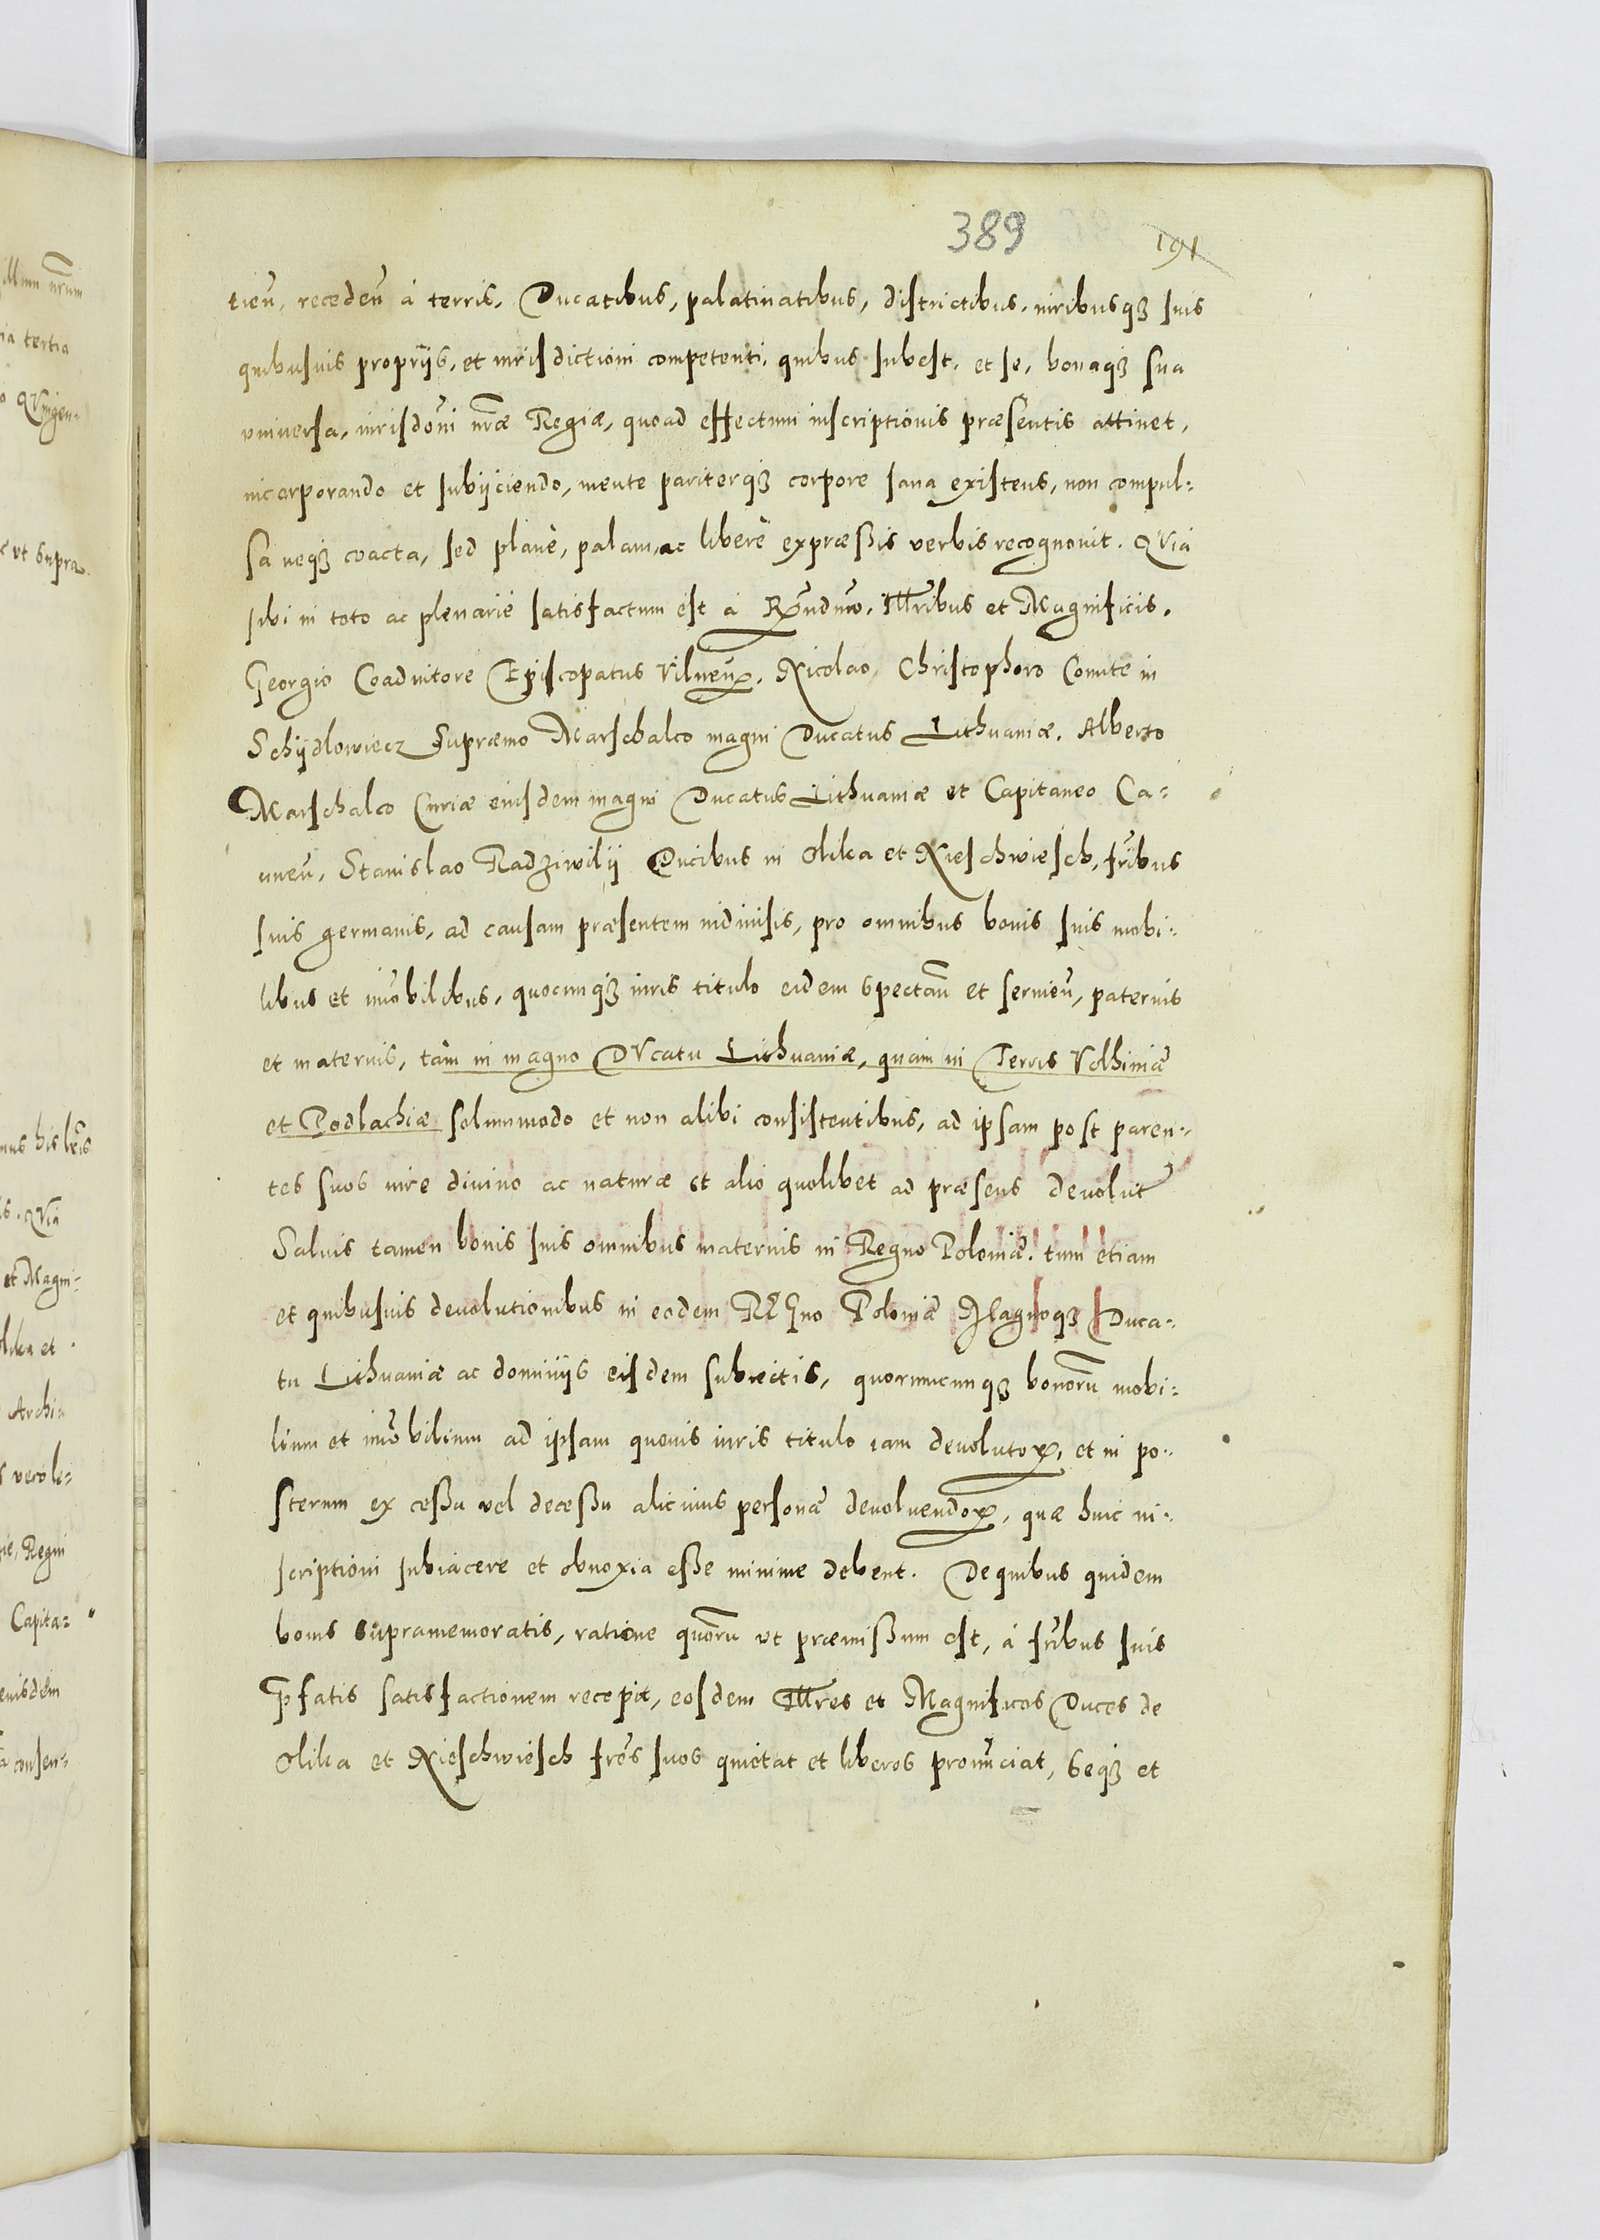 389 191
tieñ, recedeñ à terris, Ducatibus, palatinatibus, districtibus, iuribusqȝ suis
quibusuis proprijs, et iurisdictioni competenti, quibus subest, et se, bonaqȝ sua
vniuersa, iurisdoñi nr̃æ Regiæ, quoad effectum inscriptionis præsentis attinet,
incorporando et subijciendo, mente pariterqȝ corpore sana existens, non compul-
sa neqȝ coacta, sed planè, palam, ac liberè expræßis verbis recognouit. QVia
sibi in toto ac plenariè satisfactum est à Rñdum, Illr̃ibus et Magnificis,
Georgio Coadiutore Episcopatus Vilneñ, Nicolao, Christophoro Comite in
Schijdlowiecz Supræmo Marschalco magni Ducatus Lithuaniæ, Alberto
Marschalco Curiæ eiusdem magni Ducatus Lithuaniæ et Capitaneo Ca-
uneñ, Stanislao Radziwilij Ducibus in Olika et Nieschwiesch, fr̃ibus
suis germanis, ad causam præsentem indiuisis, pro omnibus bonis suis mobi-
libus et im̃obilibus, quocunqȝ iuris titulo eidem spectañ et seruieñ, paternis
et maternis, tàm in magno DVcatu Lithuaniæ, quàm in Terris Volhiniæ
et Podlachiæ solummodo et non alibi consistentibus, ad ipsam post paren-
tes suos iure diuino ac naturæ et alio quolibet ad præsens deuolut̃
Saluis tamen bonis suis omnibus maternis in Regno Poloniæ, tum etiam
et quibusuis deuolutionibus in eodem REGno Poloniæ Magnoqȝ Duca-
tu Lithuaniæ ac dominijs eisdem subiectis, quorumcunqȝ bonorũ mobi-
lium et im̃obilium ad ipsam quouis iuris titulo iam deuolutoꝝ, et in po-
sterum ex ceßu vel deceßu alicuius personæ deuoluendoꝝ, quæ huic in-
scriptioni subiacere et obnoxia eße minime debent. De quibus quidem
bonis supramemoratis, ratione quorũ vt præmißum est, à fr̃ibus suis
p̃fatis satisfactionem recepit, eosdem Illr̃es et Magnificos Duces de
Olika et Nieschwiesch fr̃es suos quietat et liberos pronũciat, seqȝ et